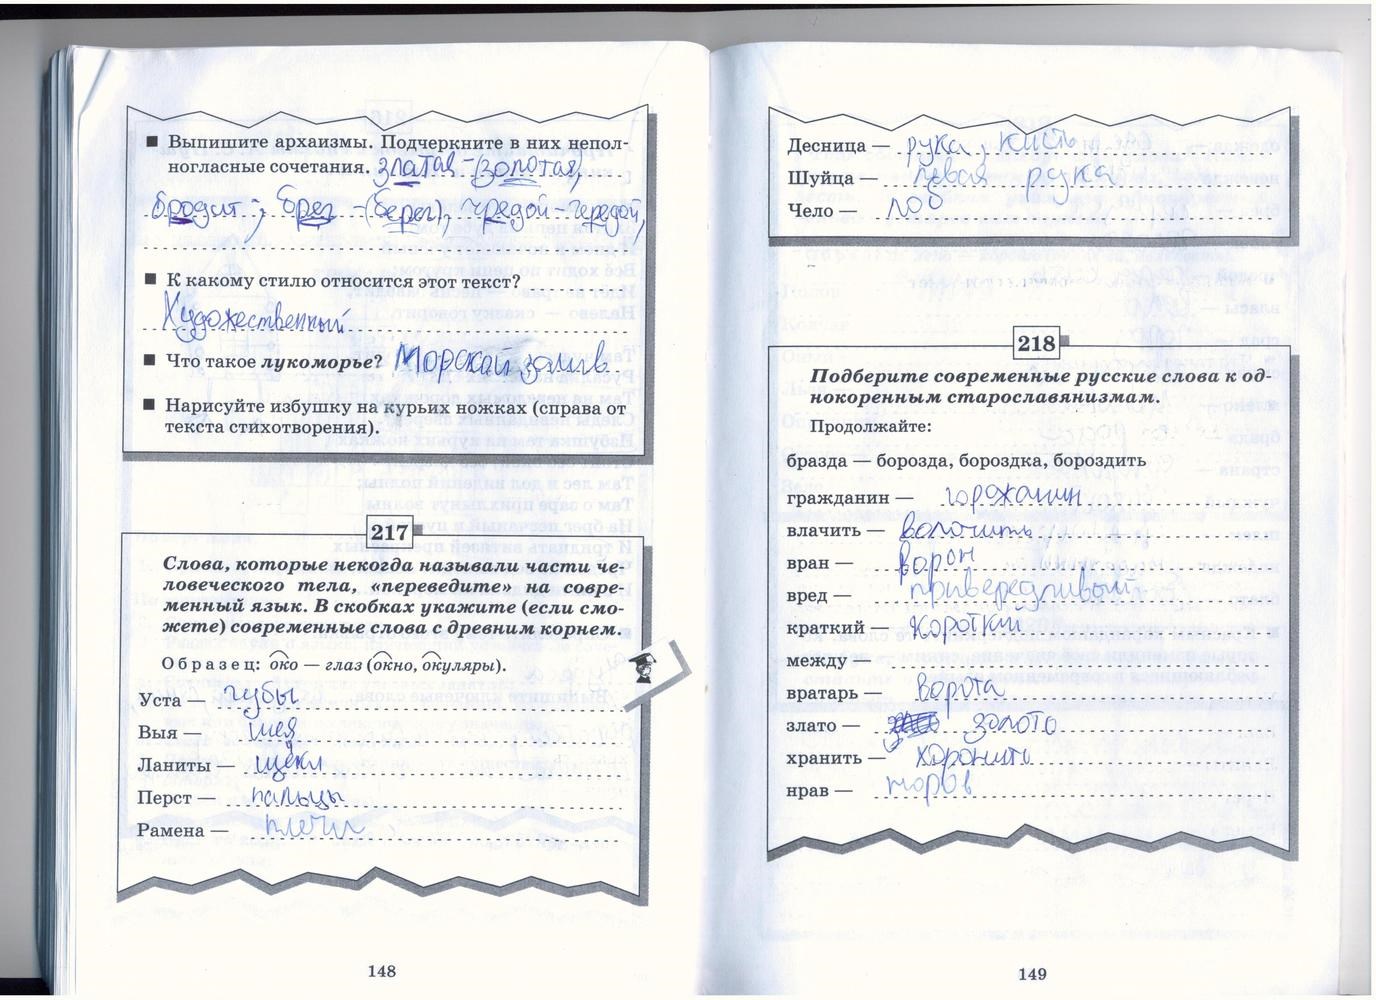 Выпишите архаизмы. Подчеркните в них непол-
ногласные сочетания. златая-(золотая,
бродит-; брег-(берег), чредой-чередой,
К какому стилю относится этот текст?
Художественный
Что такое лукоморье? Морской залив.
Нарисуйте избушку на курьих ножках (справа от
текста стихотворения).
217
Слова, которые некогда называли части че-
ловеческого тела, «переведите» на совре-
менный язык. В скобках укажите (если смо-
жете) современные слова с древним корнем.
Образец: око — глаз (окно, окуляры).
Уста — губы
Выя — шея
Ланиты — щёки
Перст — пальцы
Рамена — плечи
148
Десница — рука, кисть
Шуйца — левая рука
Чело — лоб
218
Подберите современные русские слова к од-
нокоренным старославянизмам.
Продолжайте:
бразда — борозда, бороздка, бороздить
гражданин — горожанин
влачить — волочить
вран — ворон
вред — привередливый
краткий — короткий
между —
вратарь — ворота
злато — золото
хранить — хоронить
нрав — норов
149